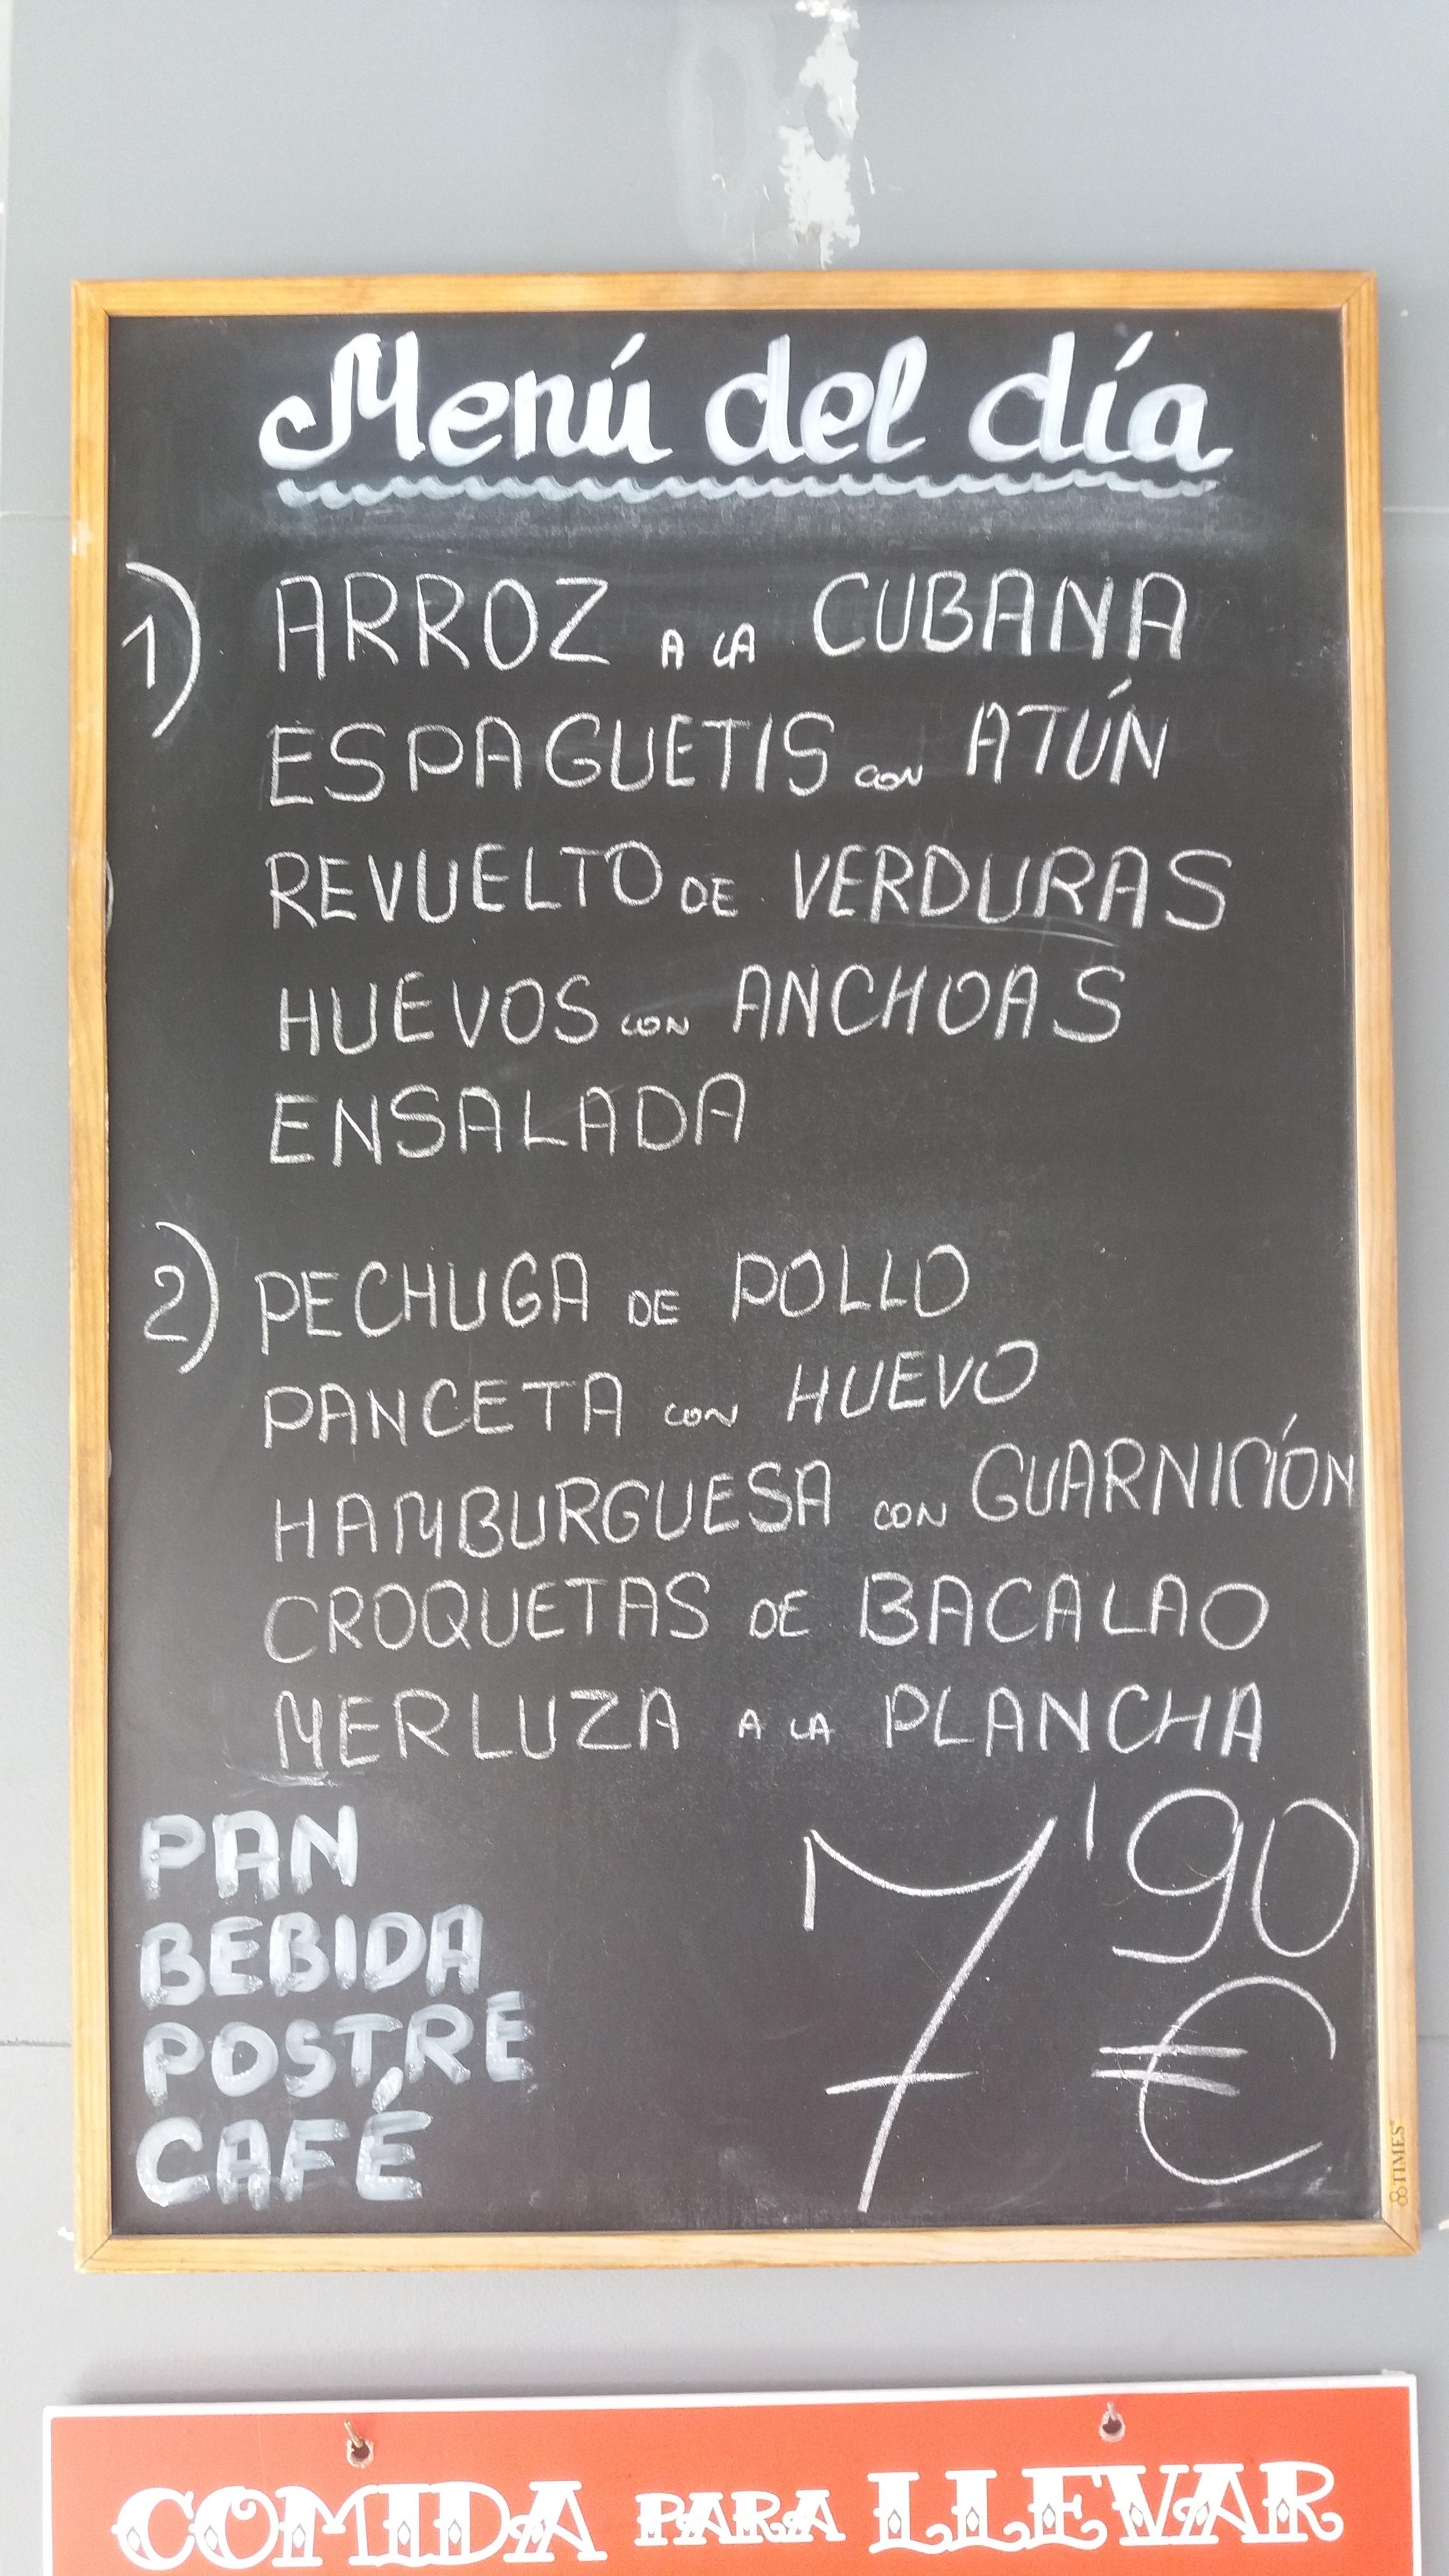 Menú del día
1) ARROZ A LA CUBANA
ESPAGUETIS CON ATÚN
REVUELTO DE VERDURAS
HUEVOS CON ANCHOAS
ENSALADA
2) PECHUGA DE POLLO
PANCETA CON HUEVO
HAMBURGUESA CON GUARNICIÓN
CROQUETAS DE BACALAO
MERLUZA A LA PLANCHA
PAN
BEBIDA
POSTRE
CAFÉ
7'90
€
TIMES
COMIDA PARA LLEVAR